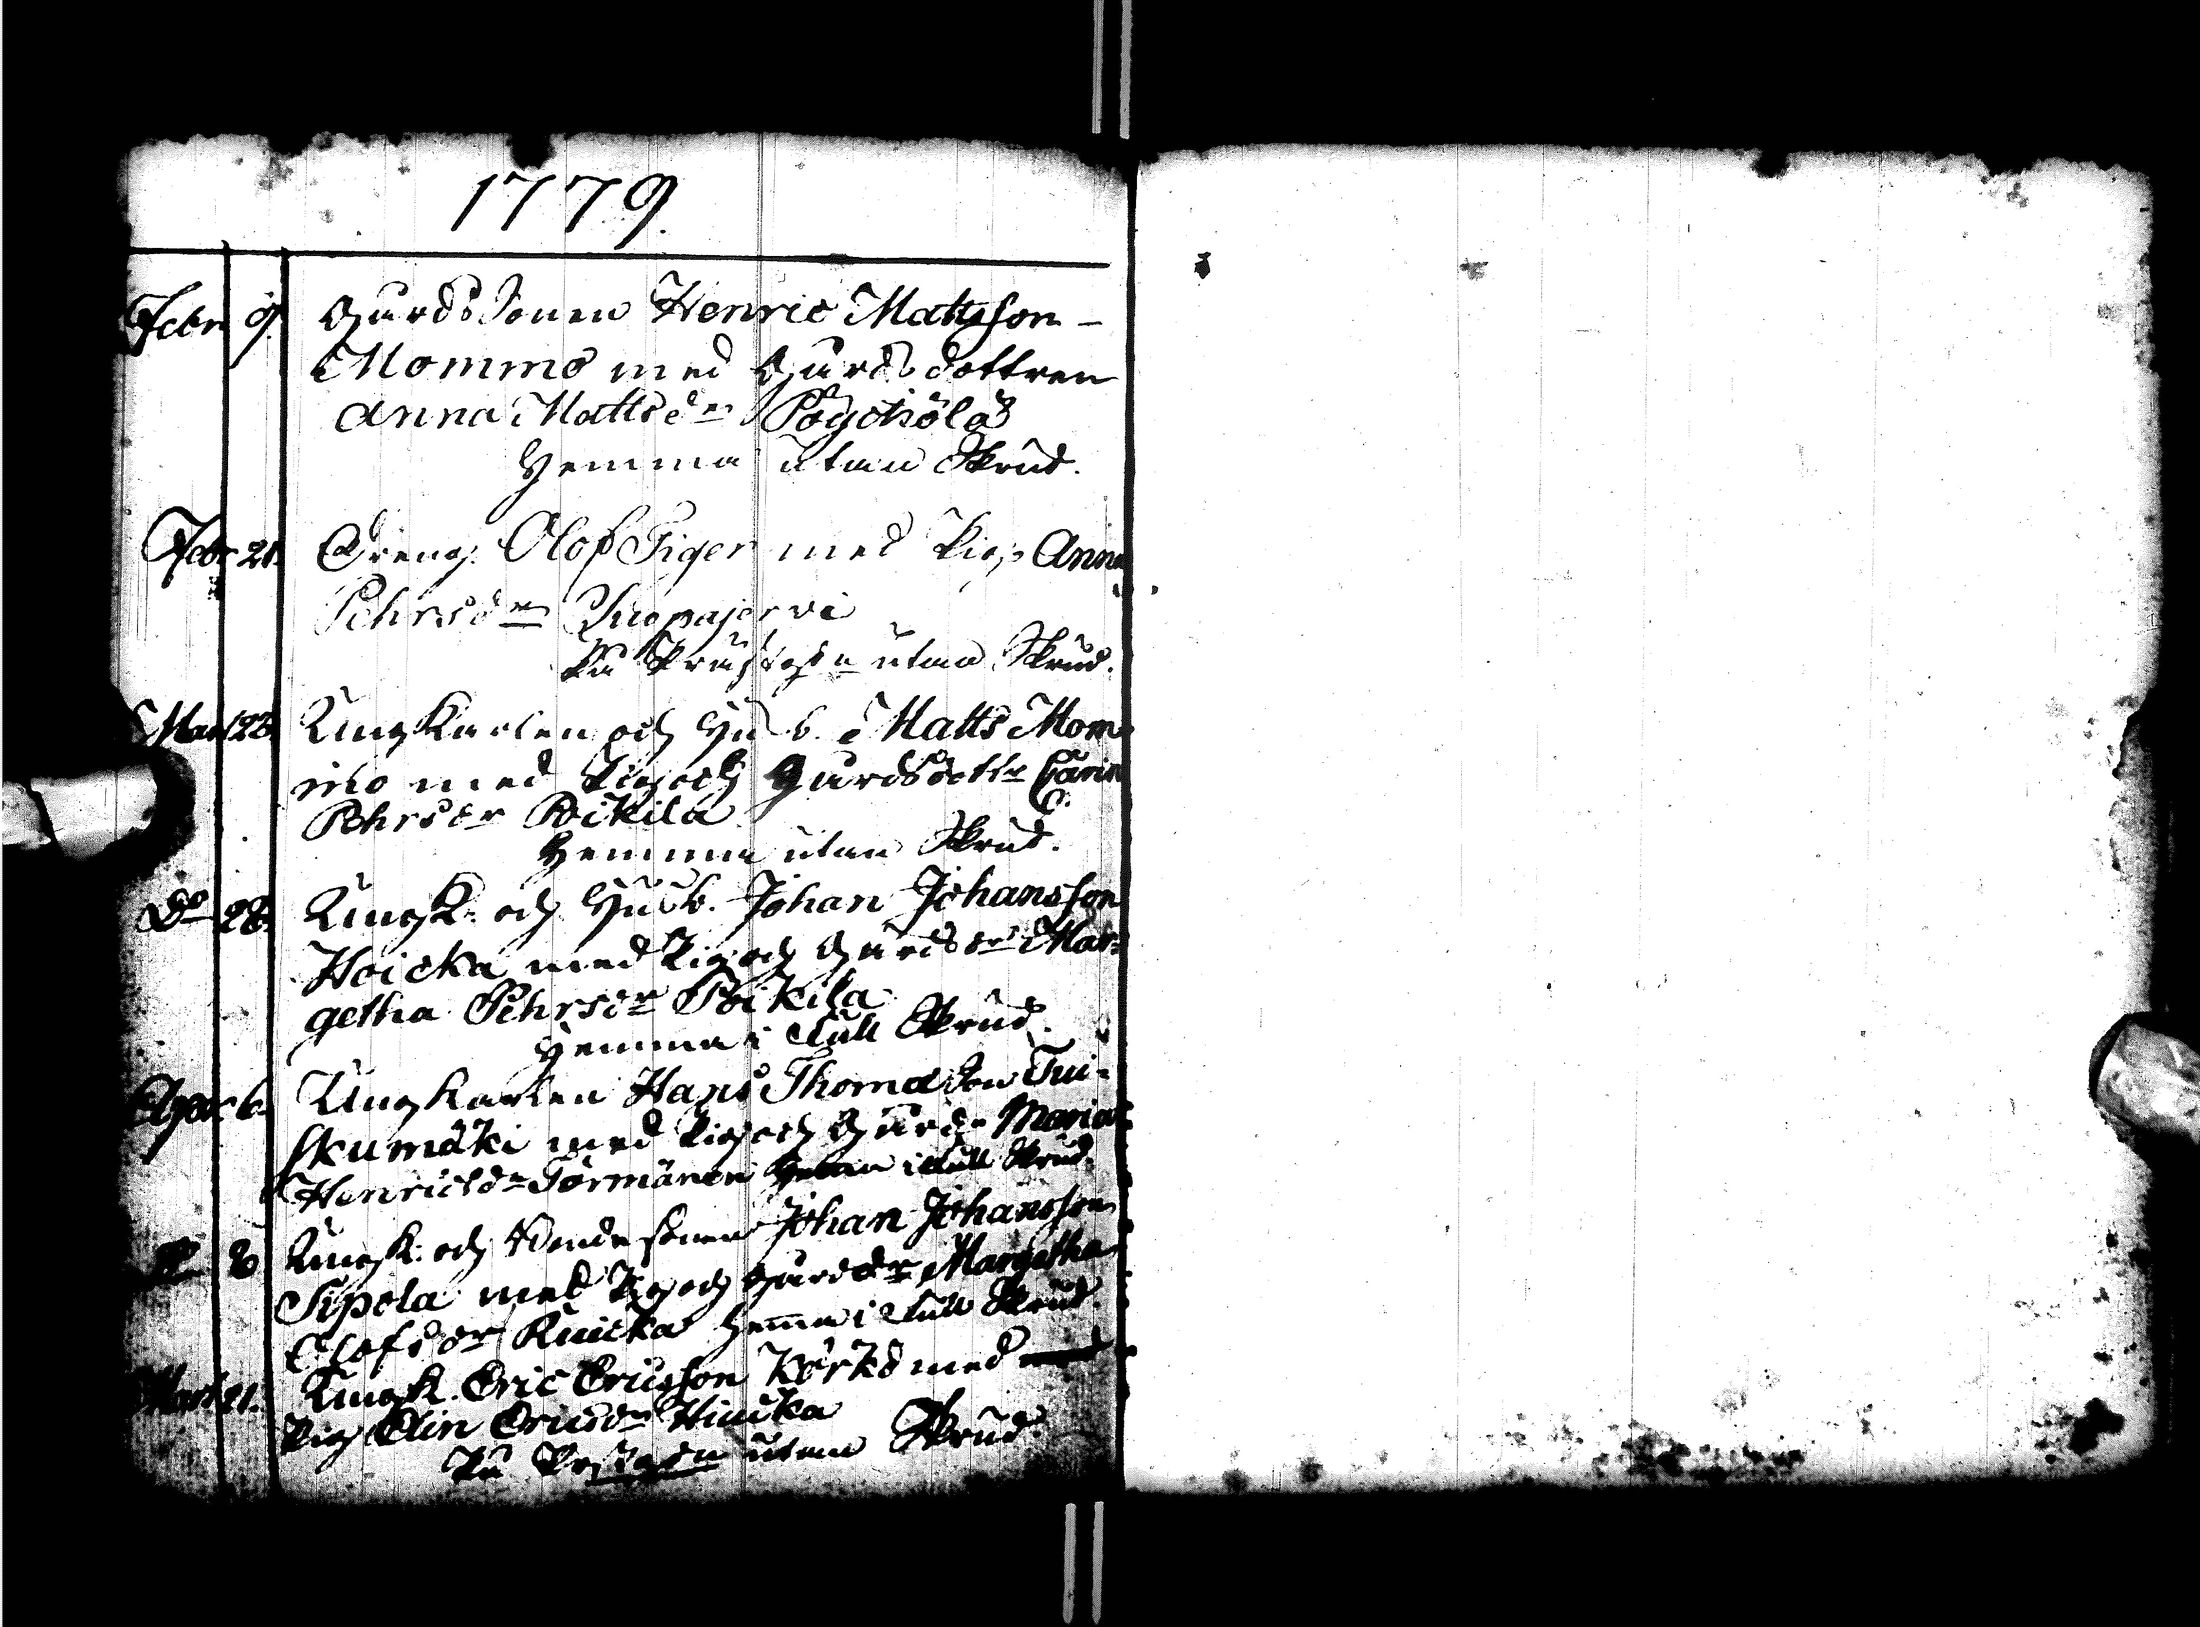 1779.
Febr 9. Gårds Sonen Henric Mattsson -
Mommo med Gårds dottren
Anna Mattsdr Pöyckölä
Hemma utan Skrud.
Febr 21. Dreng. Olof Tiger med Pig. Anna
Pehrsdr Kuopajervi
På Prästgn utan Skrud.
Mart 28. Ungkarlen och Husb. Matts Mom-
mo med Pig och Gårdsdottr Carin
Pehrsdr Poikila
Hemma utan Skrud.
Do 28. Ungk. och Husb. Johan Johansson
Hoicka med Pig och Gårdsdr Mar-
getha Pehrsdr Poikila
Hemma i full Skrud.
Apr 6. Ungkarlen Hans Thomasson Tui-
skumäki med Pig och Gårds Maria
Henricsdr Törmänen Hemma i full Skrud.
Do 6 Ungk. och Bondesonen Johan Johansson
Sipola med Pig och Gårdsdr Margetha
Olofsdr Kuicka Hemma i full Skrud.
Mart 21. Ungk. Eric Ericsson Körkö med
Pig Elin Ericsdr Hiucka
På Prstgn utan Skrud.